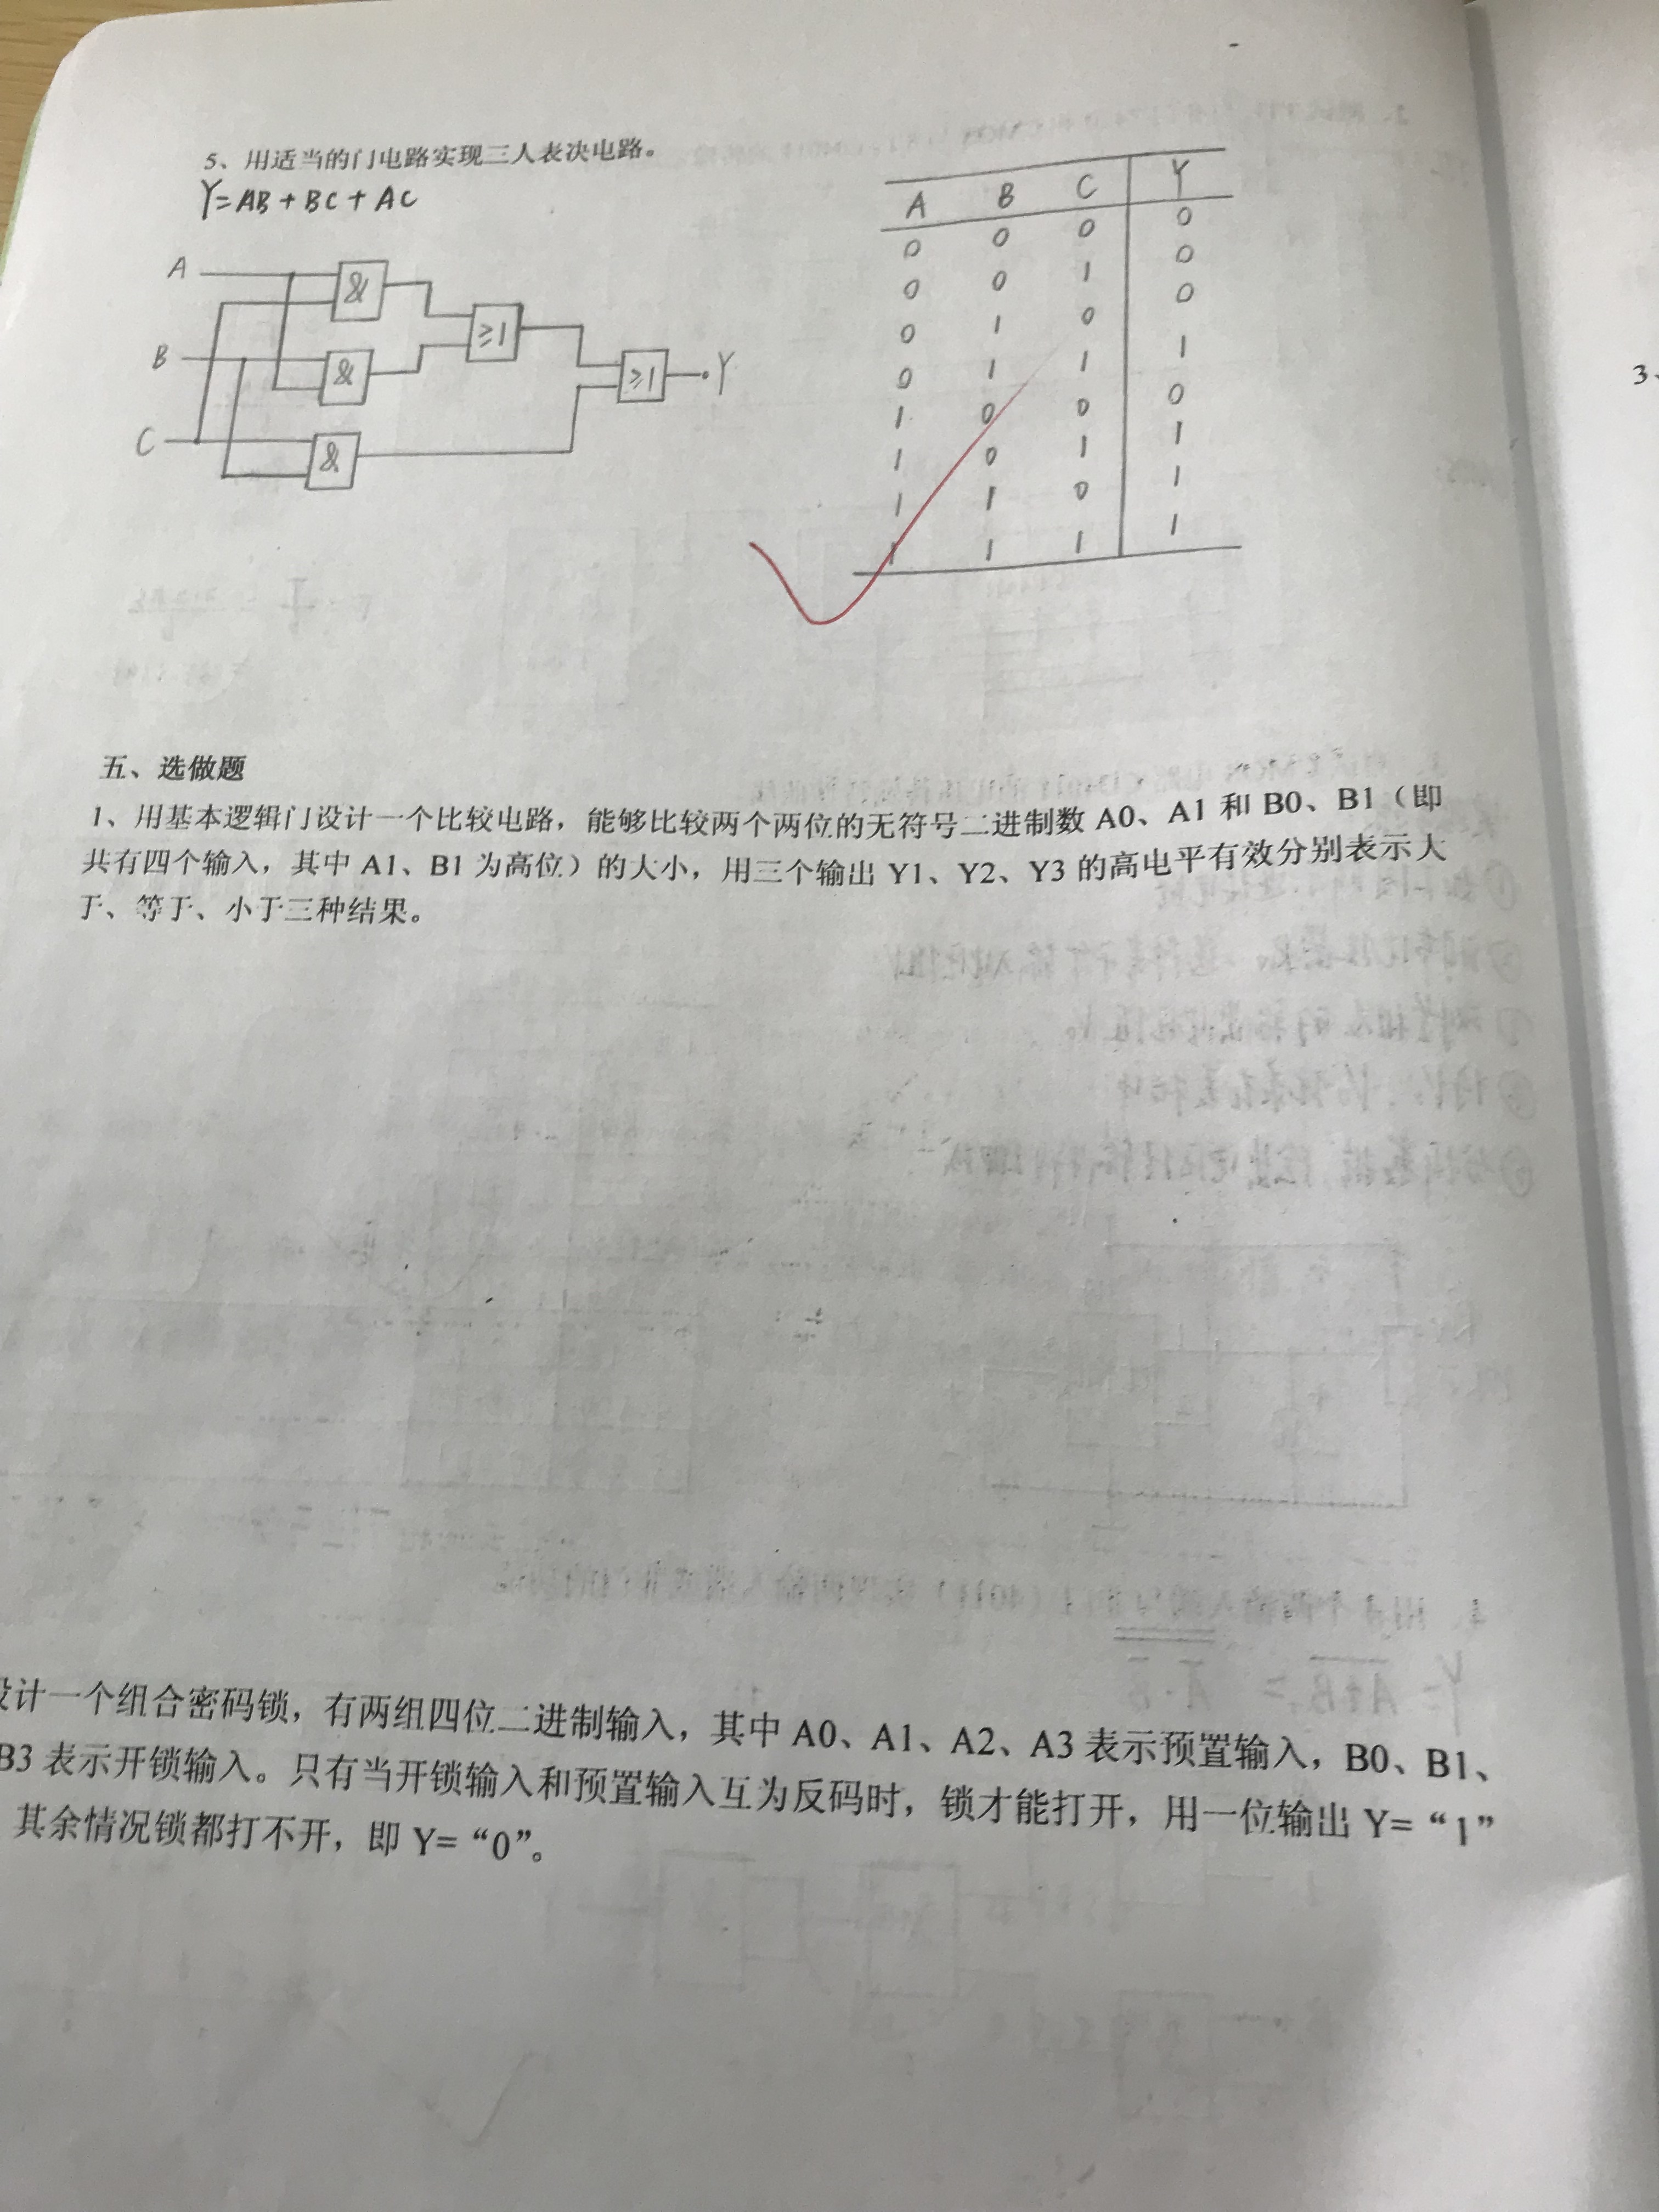 5、用适当的门电路实现三人表决电路。
Y=AB+BC+AC
A B C Y
0 0 0 0
0 0 1 0
0 1 0 0
0 1 1 1
1 0 0 0
1 0 1 1
1 1 0 1
1 1 1 1
A
&
≥1
B
&
≥1
Y
C
&
五、选做题
1、用基本逻辑门设计一个比较电路，能够比较两个两位的无符号二进制数 A0、A1 和 B0、B1（即
共有四个输入，其中 A1、B1 为高位）的大小，用三个输出 Y1、Y2、Y3 的高电平有效分别表示大
于、等于、小于三种结果。
3、
设计一个组合密码锁，有两组四位二进制输入，其中 A0、A1、A2、A3 表示预置输入，B0、B1、
B3 表示开锁输入。只有当开锁输入和预置输入互为反码时，锁才能打开，用一位输出 Y= “1”
其余情况锁都打不开，即 Y= “0”。